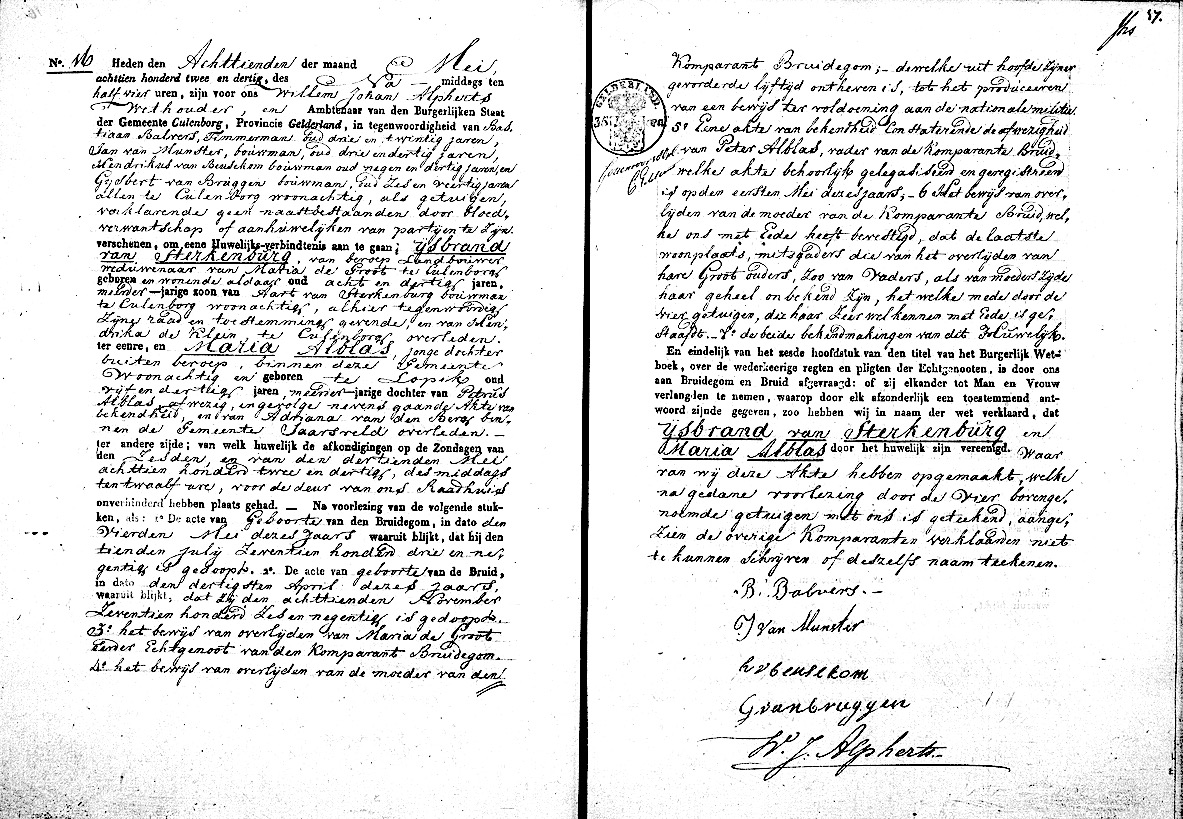 No. 16 Heden den Achttienden der maand Mei,
achttien honderd twee en dertig, des Na middags ten
half vier uren, zijn voor ons Willem Johan Alpherts
Wethouder en Ambtenaar van den Burgerlijken Staat
der Gemeente Culenborg, Provincie Gelderland, in tegenwoordigheid van Bas,
tiaan Balvers, Timmerman, oud drie en twintig jaren,
Jan van Munster, bouwman, oud drie en dertig jaren,
Hendrikus van Beusekom bouwman oud negen en dertig jaren, en
Gysbert van Bruggen bouwman, oud Zes en veertig jaren
allen te Culenborg woonachtig, als getuigen,
verklarende geen naastbestaanden door bloed,
verwantschap of aanhuwelyken van partyen te Zyn.
verschenen, om eene Huwelijks-verbindtenis aan te gaan; Ysbrand
van Sterkenburg, van beroep Landbouwer
weduwenaar van Maria de Groot te Culenborg
geboren en wonende aldaar oud acht en dertig jaren,
meerder-jarige zoon van Aart van Sterkenburg bouwman
te Culenborg woonachtig, alhier tegenwoordig
Zyne raad en toestemming gevende, en van Hen,
drika de Klein te Culenborg overleden.
ter eenre, en Maria Alblas, jonge dochter
buiten beroep, binnen deze Gemeente
Woonachtig en geboren te Lopik oud
vyf en dertig jaren, meerder-jarige dochter van Petrus
Alblas, afwezig, ingevolge nevens gaande Akte van
bekendheid, en van Adriana van den Berg bin,
nen de Gemeente Jaarsveld overleden. —
ter andere zijde; van welk huwelijk de afkondigingen op de Zondagen van
den Zesden, en van den dertienden Mei
achttien honderd twee en dertig, des middags
ten twaalf ure, voor de deur van ons Raadhuis
onverhinderd hebben plaats gehad. — Na voorlezing van de volgende stuk-
ken, als: 1o De acte van Geboorte van den Bruidegom, in dato den
Vierden Mei dezes Jaars waaruit blijkt, dat hij den
tienden July Zeventien honderd drie en ne,
gentig is gedoopt. 2o. De acte van geboorte van de Bruid,
in dato den dertigsten April dezes Jaars,
waaruit blijkt, dat Zy den achttienden November
Zeventien honderd Zes en negentig is gedoopt. —
3o het bewys van overlyden van Maria de Groot
eerder Echtgenoot van den Komparant Bruidegom. —
4o het bewys van overlyden van de moeder van den
57.
GELDERLAND
Komparant Bruidegom; — dewelke uit hoofde Zyner
gevorderde lyftyd ontheven is, tot het produceeren
van een bewys ter voldoening aan de nationale militie
5o Eene akte van bekendheid Constaterende de afwezigheid
van Peter Alblas, vader van de Komparante Bruid—
welke akte behoorlyk gelegaliseerd en geregistreerd
is op den eersten Mei dezes jaars; — 6o Het bewys van over,
lyden van de moeder van de Komparante Bruid, wel,
ke ons met Eede heeft bevestigd, dat de laatste
woonplaats, mitsgaders die van het overlyden van
hare Groot ouders, Zoo van Vaders, als van moeders Zyde
haar geheel onbekend Zyn, het welke mede door de
vier getuigen, die haar Zeer wel kennen met Eede is ge,
staafdt. — 7o de beide bekendmakingen van dit Huwelyk.
En eindelijk van het zesde hoofdstuk van den titel van het Burgerlijk Wet-
boek, over de wederkeerige regten en pligten der Echtgenooten, is door ons
aan Bruidegom en Bruid afgevraagd: of zij elkander tot Man en Vrouw
verlangden te nemen, waarop door elk afzonderlijk een toestemmend ant-
woord zijnde gegeven, zoo hebben wij in naam der wet verklaard, dat
Ysbrand van Sterkenburg en
Maria Alblas door het huwelijk zijn vereenigd. Waar
van wy deze Akte hebben opgemaakt, welke
na gedane voorlezing door de Vier bovenge,
noemde getuigen met ons is geteekend, aange,
Zien de overige Komparanten verklaarden niet
te kunnen Schryven of deszelfs naam teekenen.
B. Balvers. —
J van Munster
h v beusekom
G van bruggen
W. J. Alpherts